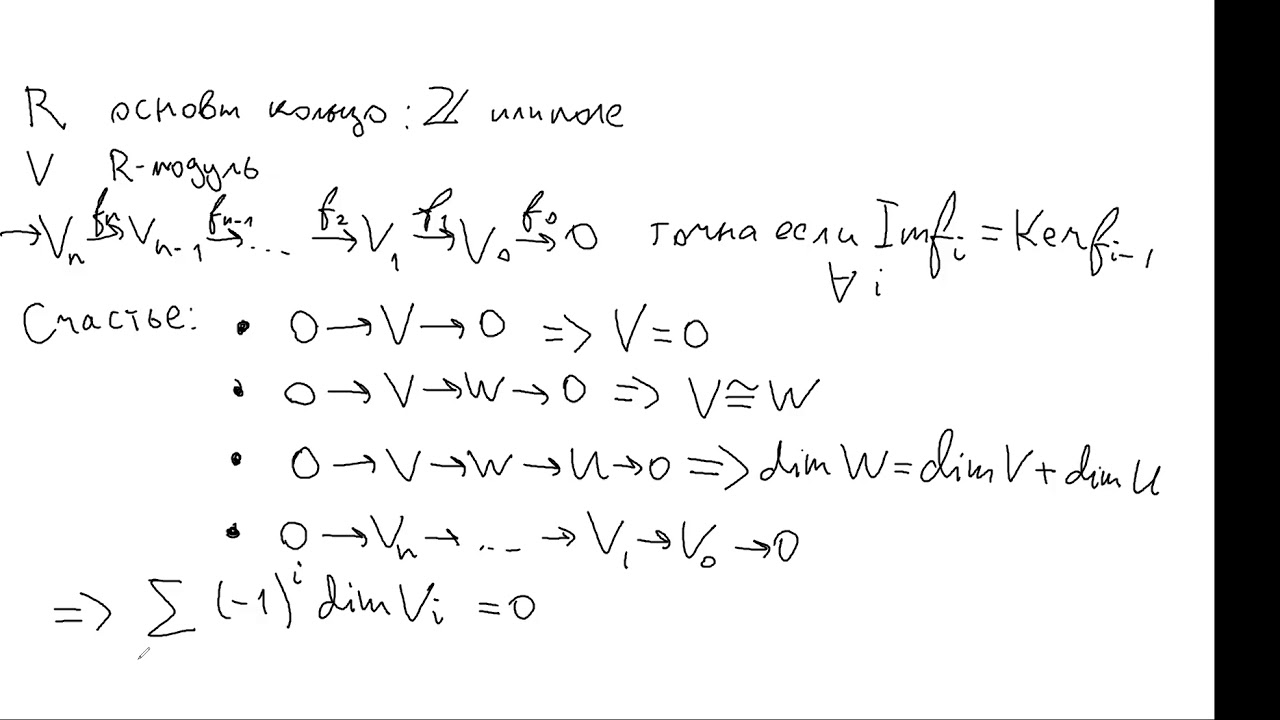 R основн кольцо : ℤ или поле
V R-модуль
→ Vₙ →^{fₙ} Vₙ₋₁ →^{fₙ₋₁} ... →^{f₂} V₁ →^{f₁} V₀ →^{f₀} 0 точна если Im fᵢ = Ker fᵢ₋₁
∀ i
Счастье: • 0 → V → 0 => V = 0
• 0 → V → W → 0 => V ≅ W
• 0 → V → W → U → 0 => dim W = dim V + dim U
• 0 → Vₙ → ... → V₁ → V₀ → 0
=> ∑ (-1)ⁱ dim Vᵢ = 0